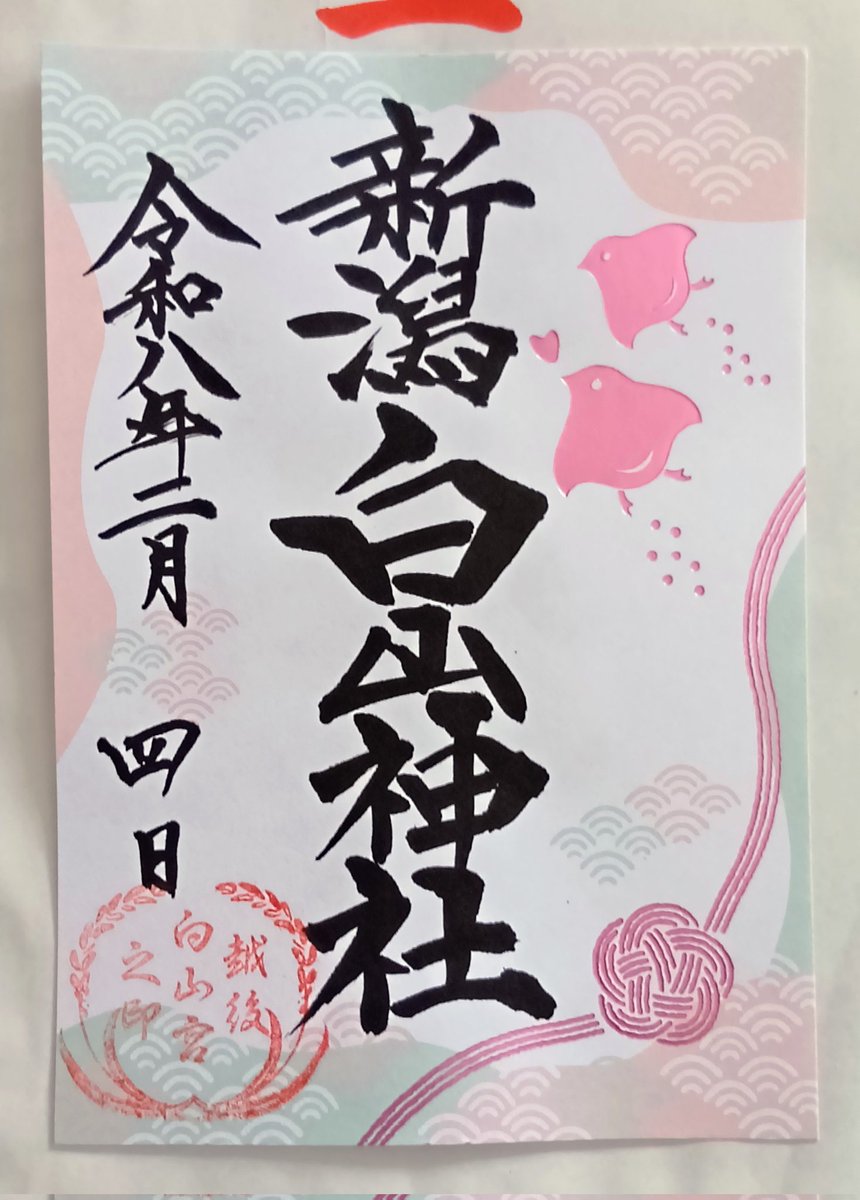 新潟白山神社
令和八年二月 四日
越後
白山宮
之印